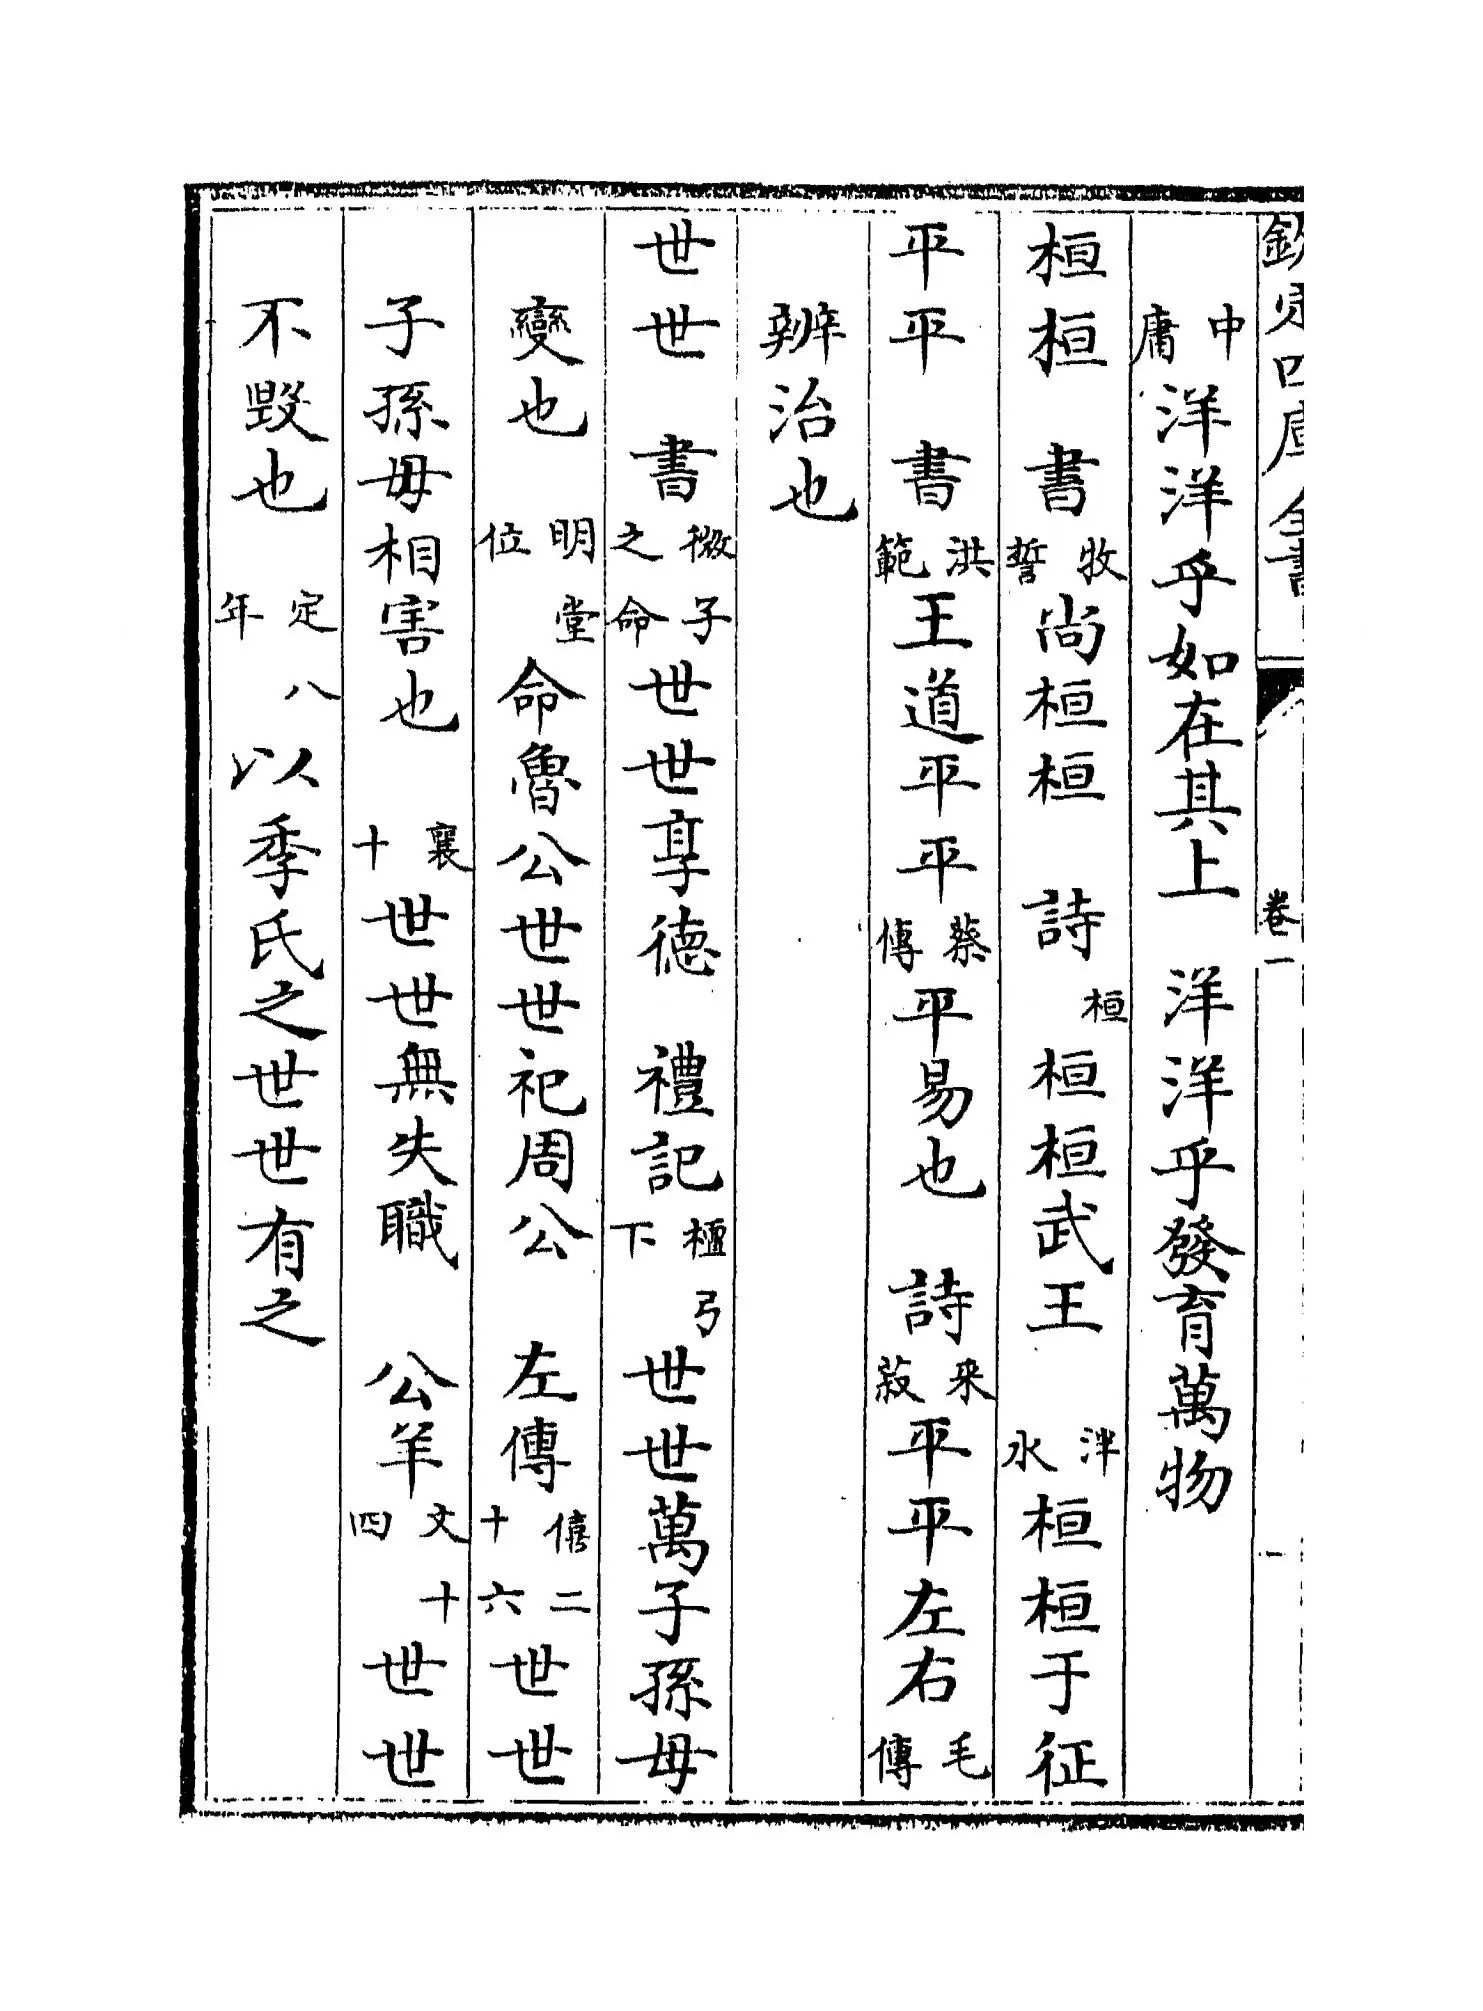 欽定四庫全書 卷一 一
中庸洋洋乎如在其上 洋洋乎發育萬物
桓桓 書牧誓尚桓桓 詩桓桓桓武王 泮水桓桓于征
平平 書洪範王道平平蔡傳平易也 詩采菽平平左右毛傳
辨治也
世世 書微子之命世世享德 禮記檀弓下世世萬子孫毋
變也 明堂位命魯公世世祀周公 左傳僖二十六世世
子孫毋相害也 襄十世世無失職 公羊文十四世世
不毀也 定八年以季氏之世世有之